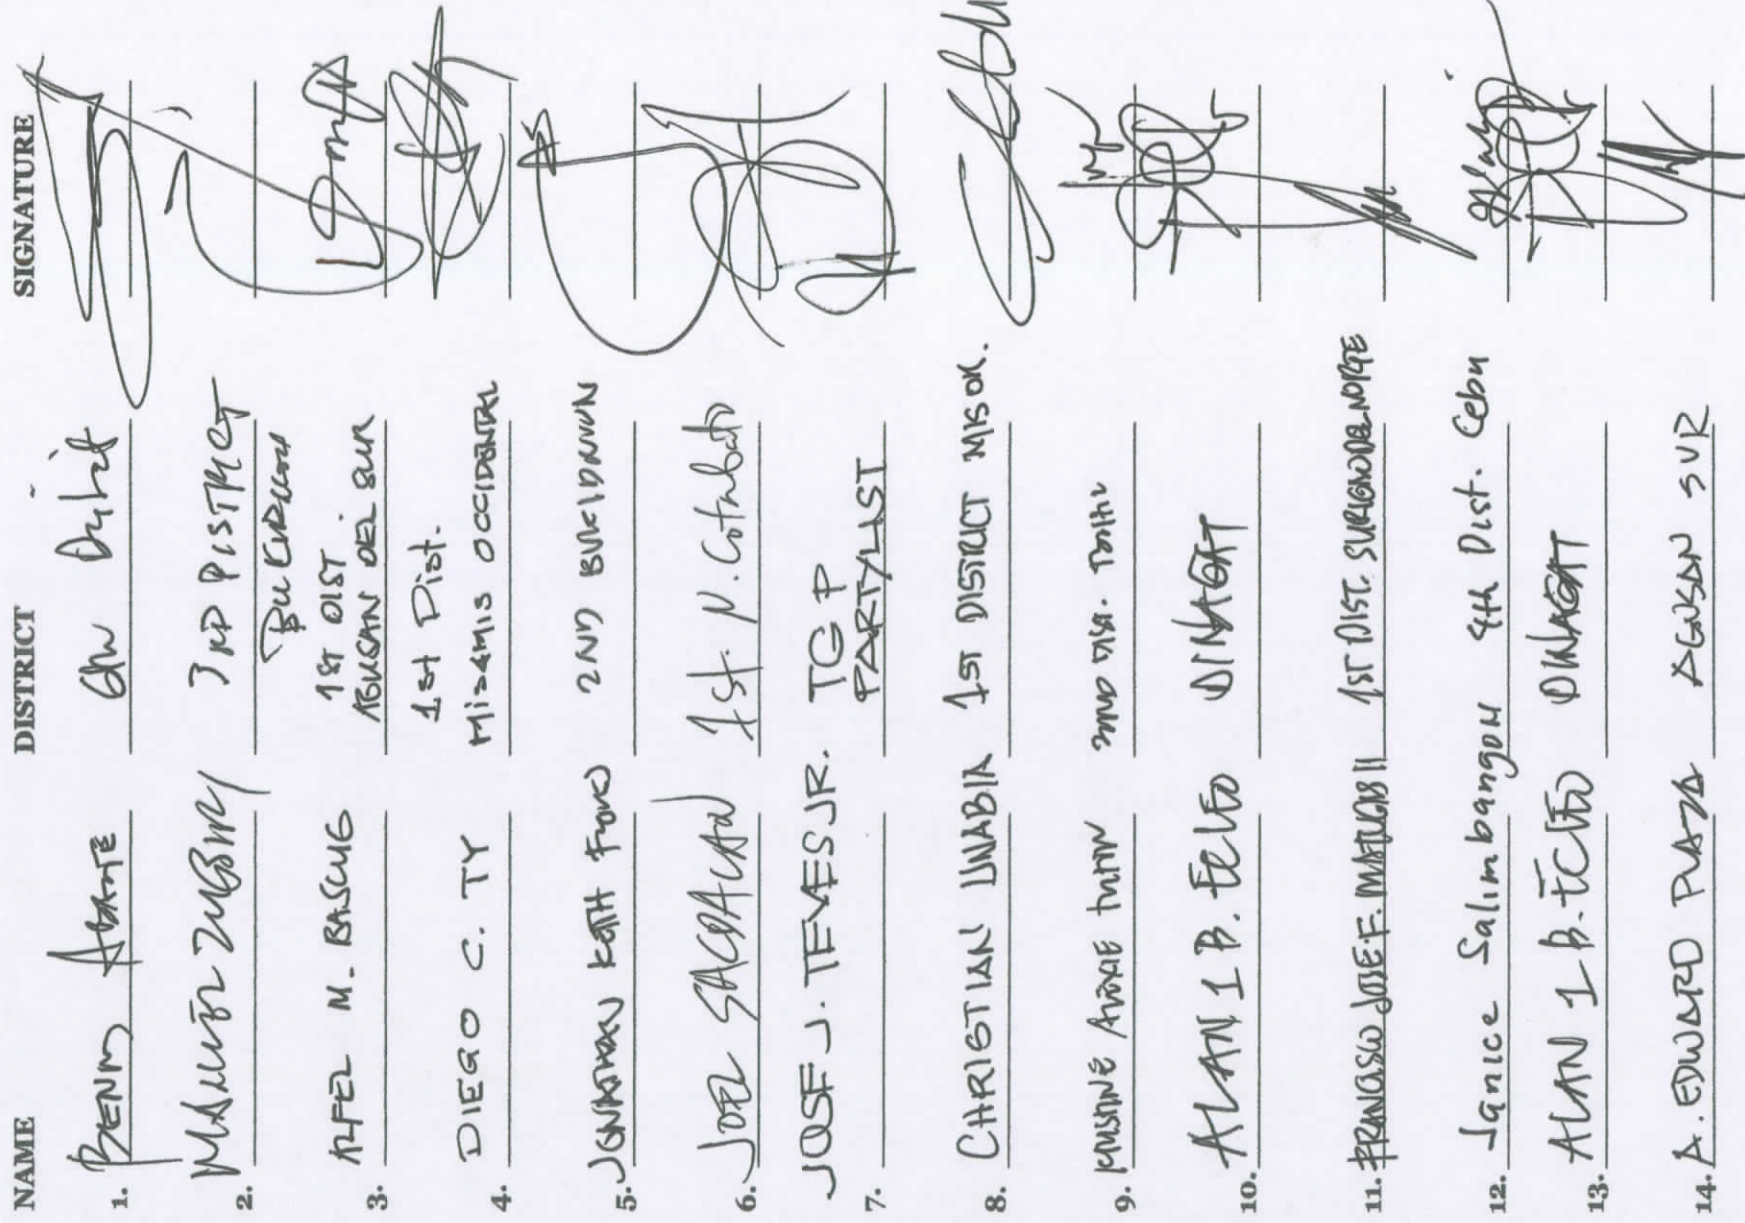 NAME DISTRICT SIGNATURE
1. BENNY ABANTE 6th District
2. MANUEL ZUBIRI 3RD DISTRICT
BUKIDNON
3. ALFEL M. BASCUG 1ST DIST
AGUSAN DEL SUR
4. DIEGO C. TY 1st Dist.
Misamis OCCIDENTAL
5. JONATHAN KEITH FLORES 2ND BUKIDNON
6. JOEL SACDALAN 1st. N. Cotabato
7. JOSE J. TEVES JR. TGP
PARTYLIST
8. CHRISTIAN UNABIA 1ST DISTRICT MISOR.
9. 2ND DIST.
10. ALAN 1 B. ECLEO DINAGAT
11. FRANCISCO JOSE F. MATUGAS II 1ST DIST. SURIGAO DEL NORTE
12. Janice Salimbangon 4th Dist. Cebu
13. ALAN 1 B. ECLEO DINAGAT
14. A. EDWARD PLAZA AGUSAN SUR